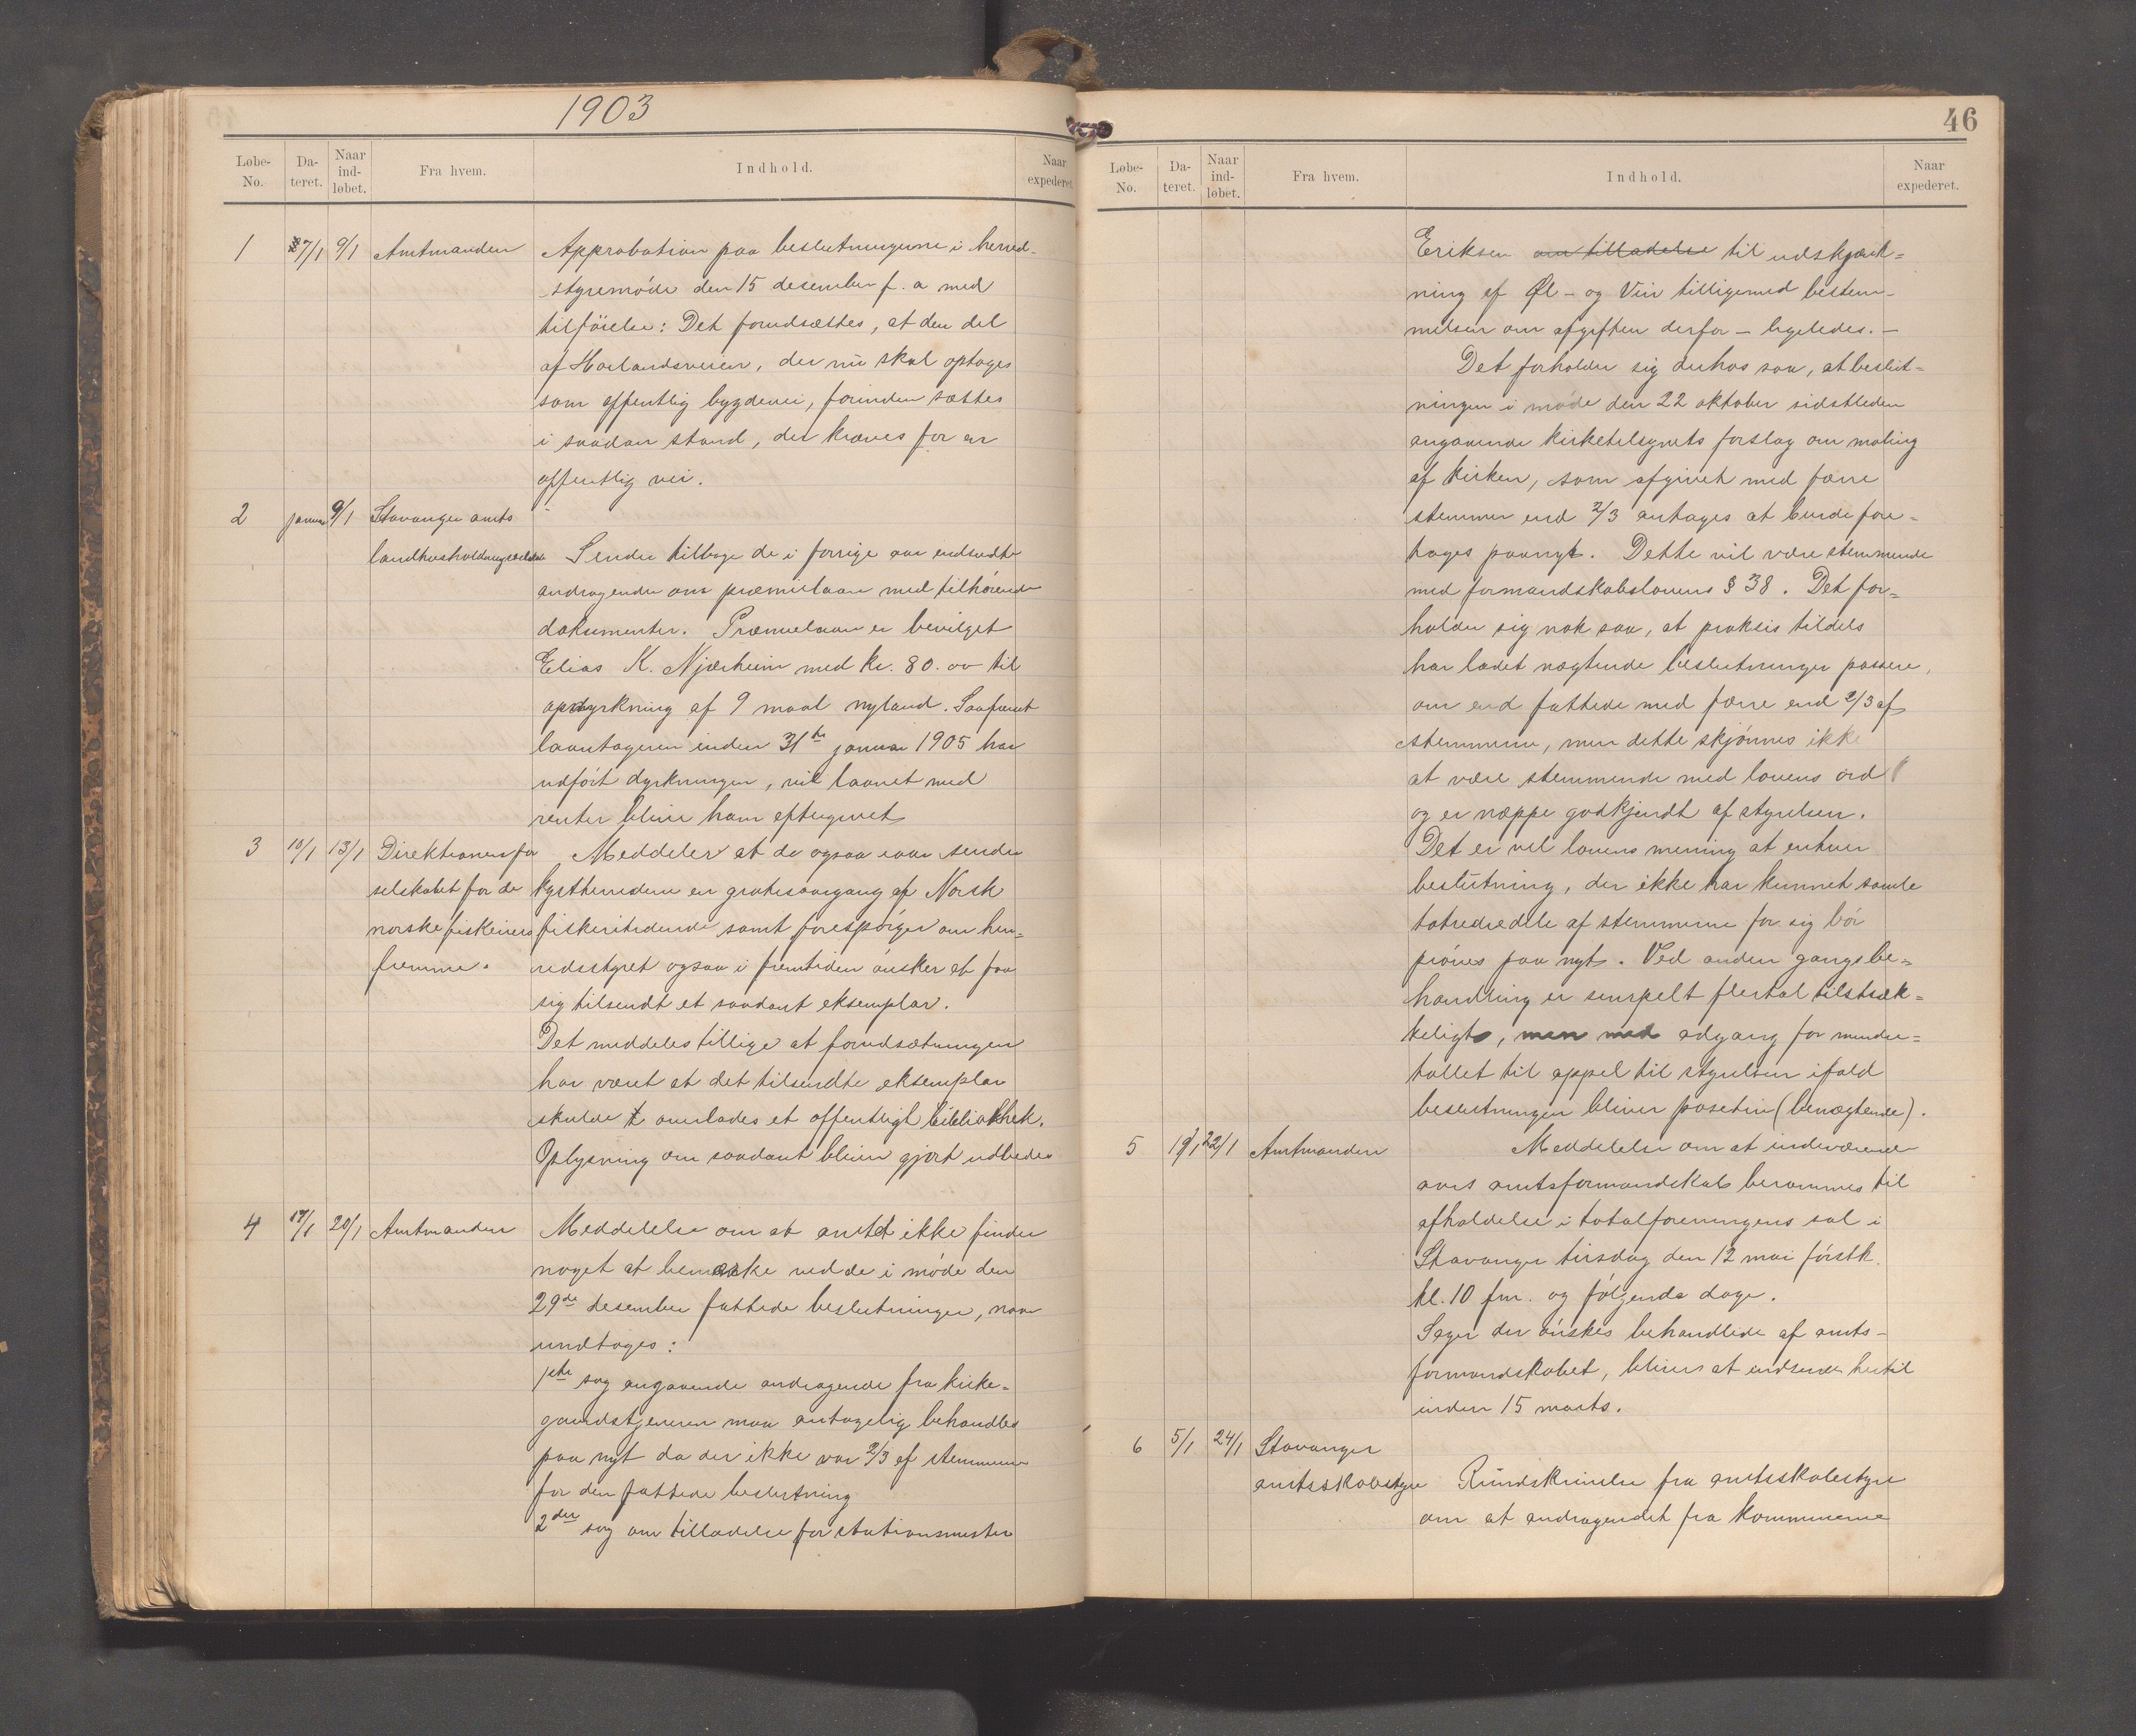 1903
Løbe-No. Da-teret. Naar ind-løbet. Fra hvem. Indhold. Naar expederet.
1 7/1 9/1 Amtmanden Approbation paa beslutningerne i herred-
styremöde den 15 desember f. a med
tilföielse: Det forudsættes, at den del
af Haelandsveien, der nu skal optages
som offentlig bygdevei, forinden sættes
i saadan stand, der kræves for en
offentlig vei.
2 januar 9/1 Stavanger amts
landhusholdningsselskab Sender tilbage de i forrige aar indsendte
andragender om præmielaan med tilhørende
dokumenter. Præmielaan er bevilget
Elias K. Njærheim med kr. 80.00 til
opdyrkning af 9 maal nyland. Saafremt
laantageren inden 31te januar 1905 har
udfört dyrkningen, vil laanet med
renter blive ham eftergivet
3 10/1 13/1 Direktionen for Meddeler at de ogsaa iaar sender
selskabet for de kystherrederne en gratisaargang af Norsk
norske fiskeriers fiskeritidende samt forespörger om her-
fremme. redsstyret ogsaa i fremtiden önsker at faa
sig tilsendt et saadant eksemplar.
Det meddeles tillige at forudsætningen
har været at det tilsendte eksemplar
skulde overlades et offentligt bibliothek.
Oplysning om saadant bliver gjort udbedes
4 17/1 20/1 Amtmanden Meddelelse om at amtet ikke finder
noget at bemærke ved de i möde den
29de desember fattede beslutninger, naar
undtages:
1ste sag angaaende andragende fra kirke-
gaardstjeneren maa antagelig behandles
paa nyt da der ikke var 2/3 af stemmerne
for den fattede beslutning
2den sag om tilladelse for stationsmester
46
Løbe-No. Da-teret. Naar ind-løbet. Fra hvem. Indhold. Naar expederet.
Eriksen om tilladelse til udskjænk=
ning af Øl- og Vin tilligemed bestem-
melsen om afgiften derfor - ligeledes. -
Det forholder sig derhos saa, at beslut=
ningen i møde den 22 oktober sidstleden
angaaende kirketilsynets forslag om maling
af kirken, som afgivet med færre
stemmer end 2/3 antages at burde fore-
tages paanyt. Dette vil være stemmende
med formandskabslovens § 38. Det for=
holder sig nok saa, at praksis tildels
har ladet nægtende beslutninger passere,
om end fattede med færre end 2/3 af
stemmerne, men dette skjønnes ikke
at være stemmende med lovens ord
og er næppe godkjendt af styrelsen.
Det er vel lovens mening at enhver
beslutning, der ikke har kunnet samle
totrediedele af stemmerne for sig bör
pröves paa nyt. Ved anden gangs be=
handling er simpelt flertal tilstræk=
keligt, men med adgang for mindre=
tallet til appel til styrelsen ifald
beslutningen bliver posetiv (benægtende).
5 19/1 22/1 Amtmanden Meddelelse om at indeværende
aars amtsformandskab berammes til
afholdelse i totalforeningens sal i
Stavanger tirsdag den 12 mai förstk.
kl. 10 fm. og fölgende dage.
Sager der önskes behandlede af amts-
formandskabet, bliver at indsende hertil
inden 15 marts.
6 5/1 24/1 Stavanger
amtsskolestyre Rundskrivelse fra amtsskolestyre
om at andragendet fra kommunerne